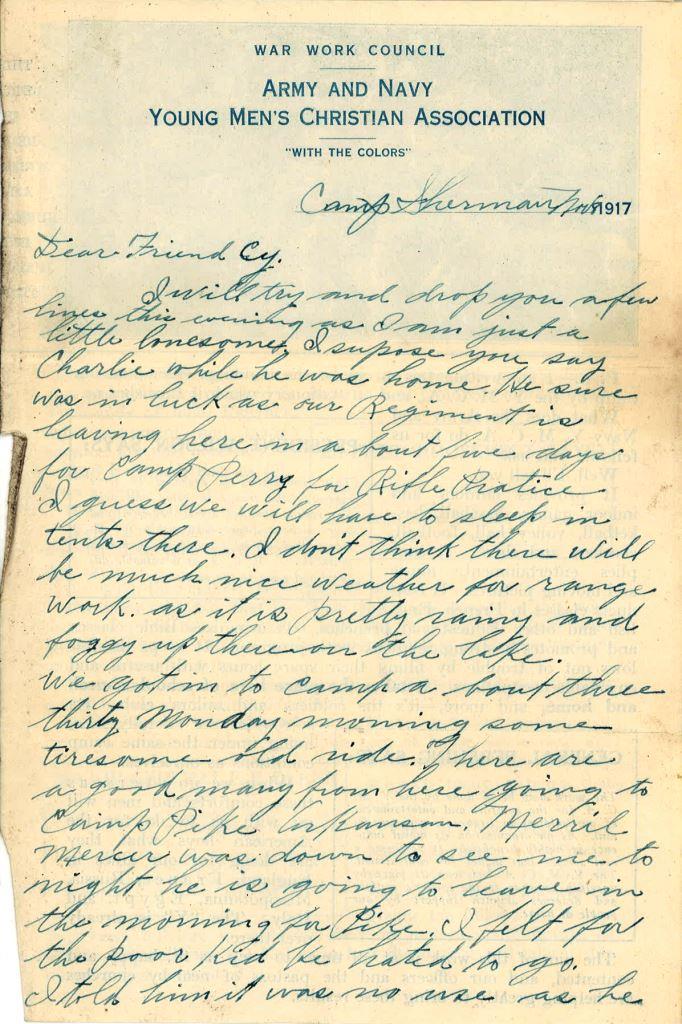 WAR WORK COUNCIL
ARMY AND NAVY
YOUNG MEN'S CHRISTIAN ASSOCIATION
"WITH THE COLORS"
Camp Sherman Nov 1917
Dear Friend Cy.
I will try and drop you a few
lines this evening as I am just a
little lonesome, I supose you say
Charlie while he was home. He sure
was in luck as our Regiment is
leaving here in a bout five days
for Camp Perry for Rifle Pratice
I guess we will have to sleep in
tents there. I don't think there will
be much nice weather for range
work. as it is pretty rainy and
foggy up there on the lake.
We got in to camp a bout three
thirty Monday morning some
tiresome old ride. There are
a good many from here going to
Camp Pike Arkansan. Merril
Mercer was down to see me to
night he is going to leave in
the morning for Pike. I felt for
the poor kid he hated to go.
I told him it was no use as he